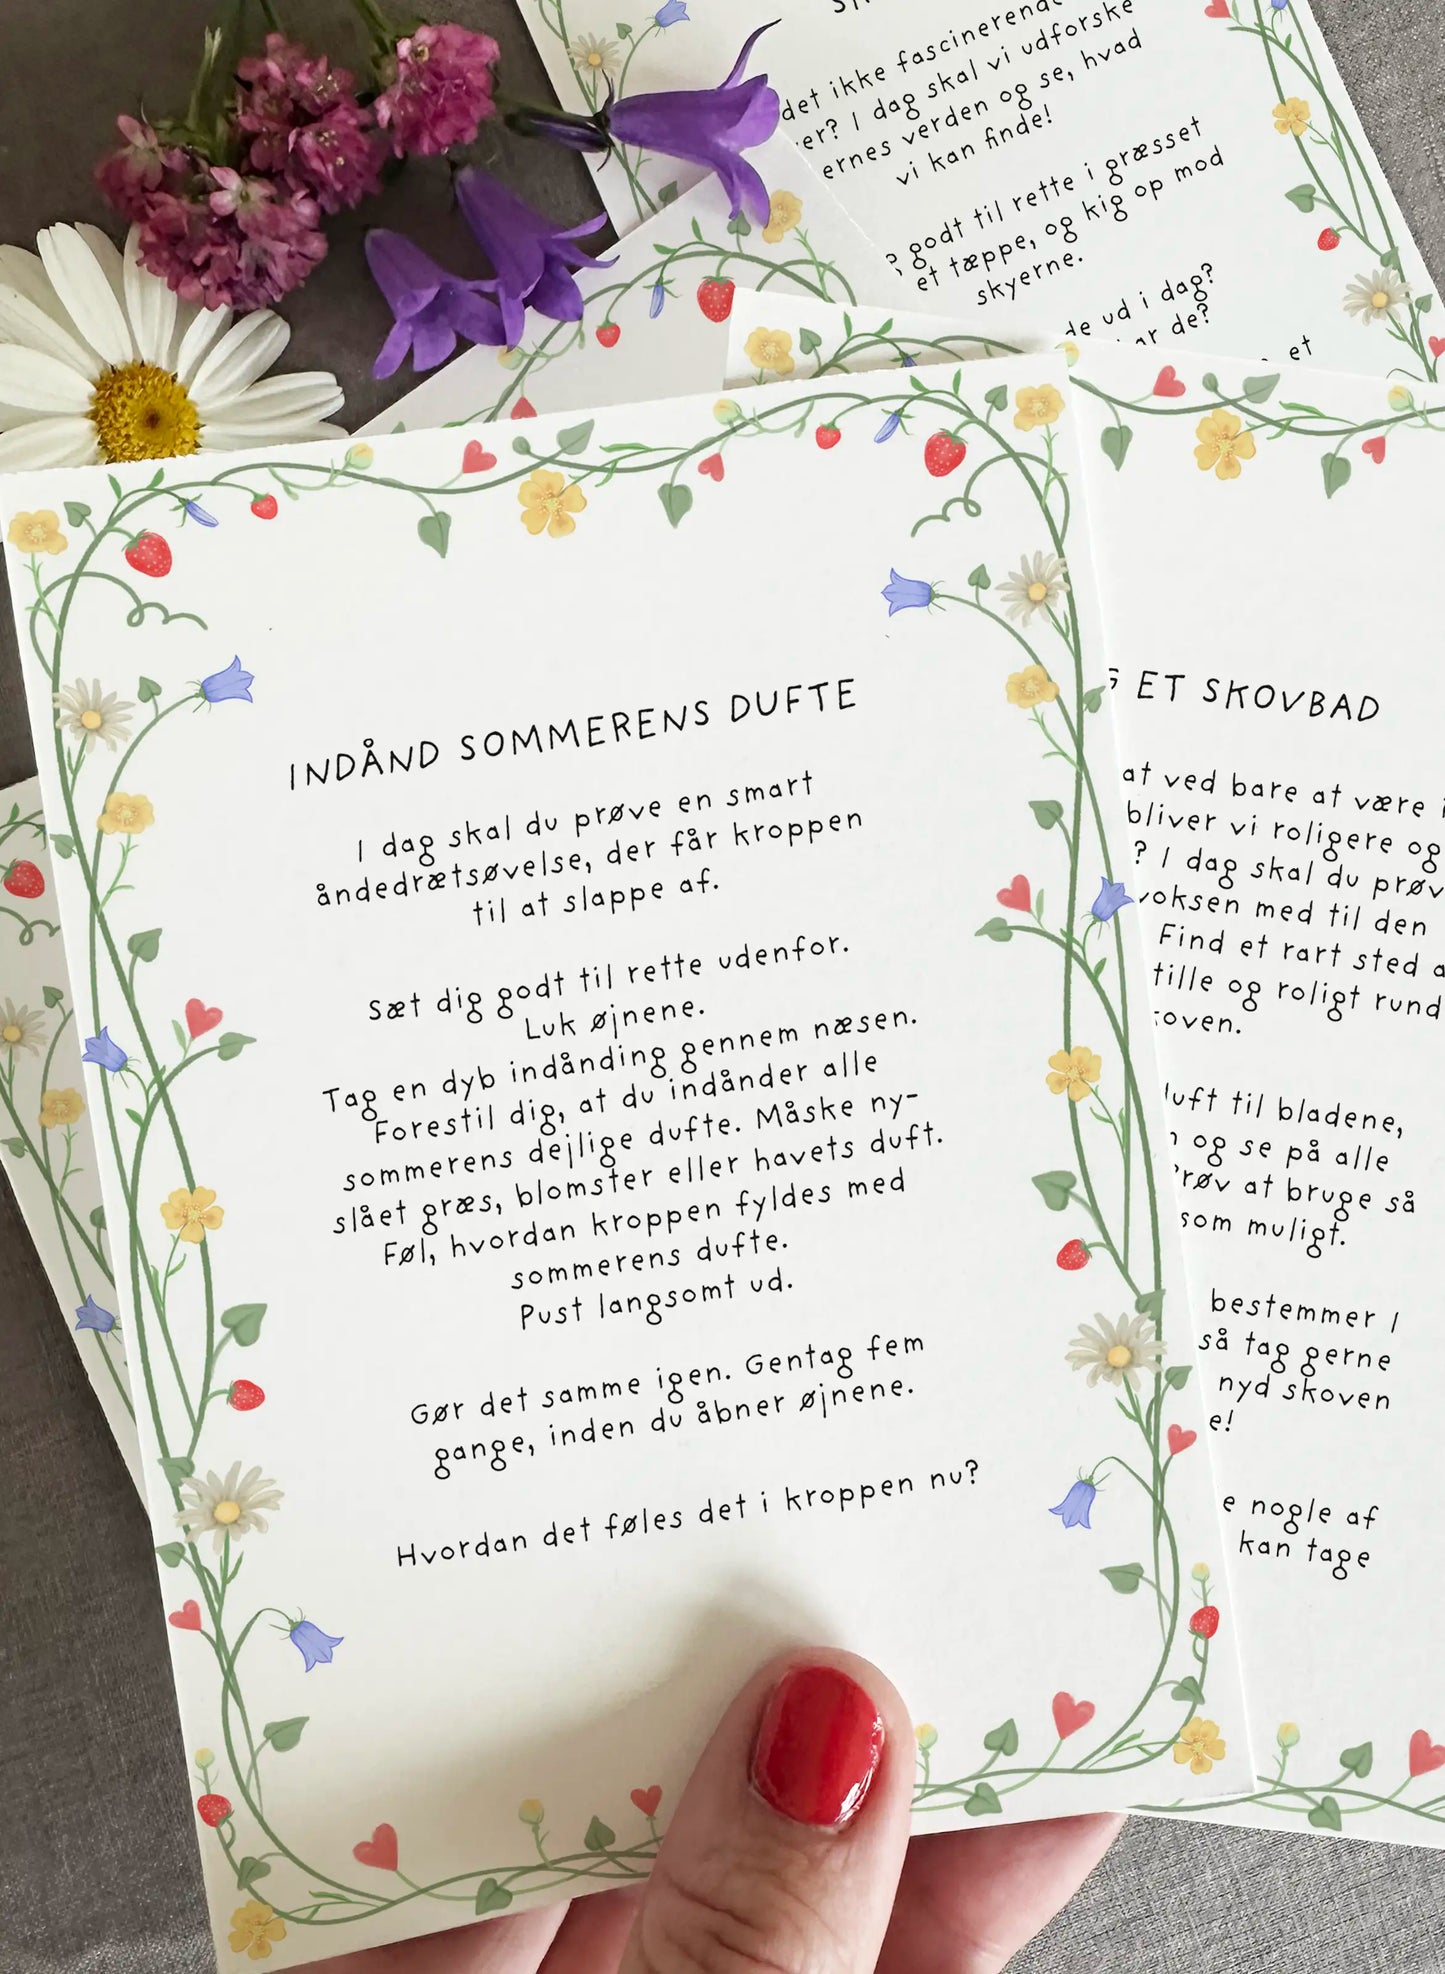 det ikke fascinerende
er? I dag skal vi udforske
ernes verden og se, hvad
vi kan finde!
godt til rette i græsset
et tæppe, og kig op mod
skyerne.
de ud i dag?
ar de?
et
INDÅND SOMMERENS DUFTE
I dag skal du prøve en smart
åndedrætsøvelse, der får kroppen
til at slappe af.
Sæt dig godt til rette udenfor.
Luk øjnene.
Tag en dyb indånding gennem næsen.
Forestil dig, at du indånder alle
sommerens dejlige dufte. Måske ny-
slået græs, blomster eller havets duft.
Føl, hvordan kroppen fyldes med
sommerens dufte.
Pust langsomt ud.
Gør det samme igen. Gentag fem
gange, inden du åbner øjnene.
Hvordan det føles det i kroppen nu?
ET SKOVBAD
at ved bare at være i
bliver vi roligere og
? I dag skal du prøv
voksen med til den
Find et rart sted a
tille og roligt rund
oven.
luft til bladene,
og se på alle
røv at bruge så
som muligt.
bestemmer I
så tag gerne
nyd skoven
e!
e nogle af
kan tage